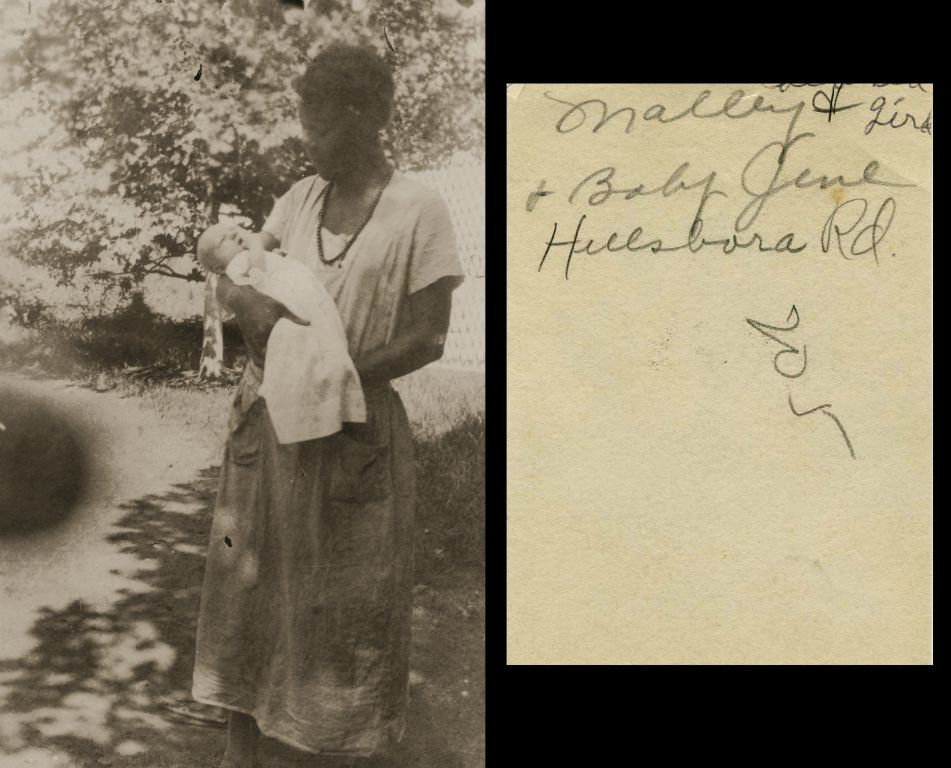 Malley & girl
& Baby Jene
Hillsbora Rd.